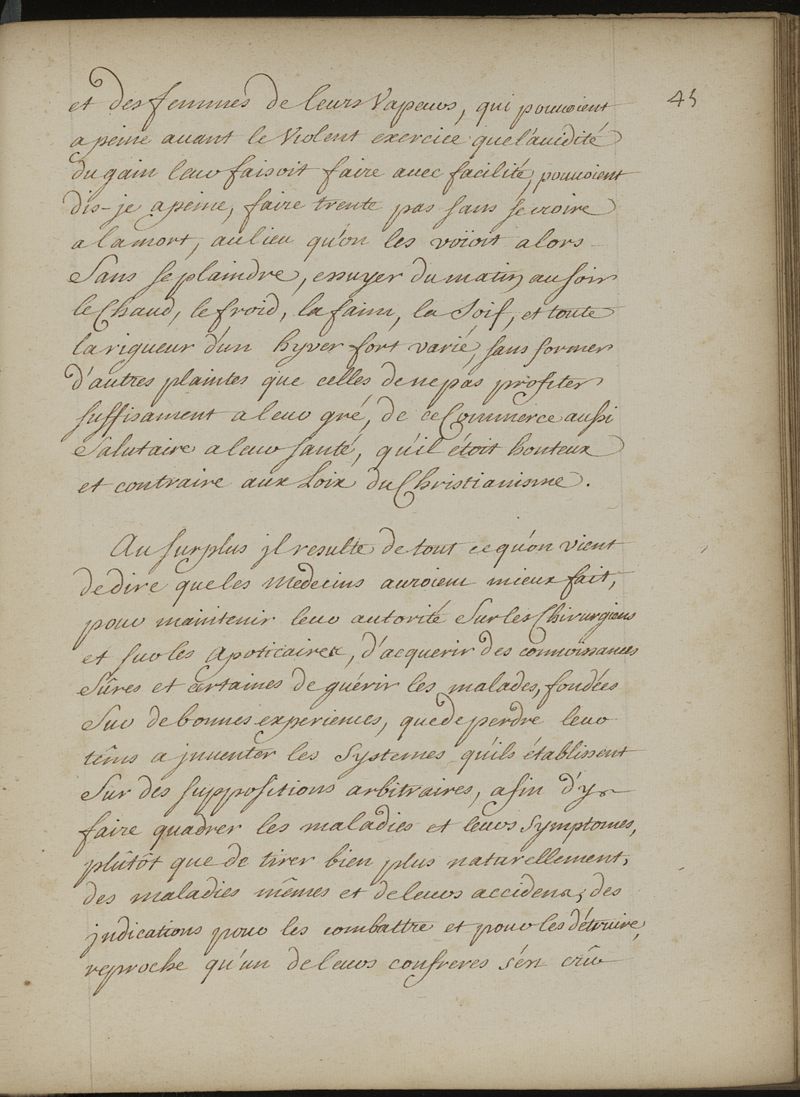 45
et des femmes de leurs Vapeurs, qui pouvoient
a peine avant le Violent exercice que l'avidité
du gain leur faisoit faire avec facilité, pouvoient
dis-je a peine, faire trente pas sans se croire
a la mort, au lieu qu'on les voïoit alors
Sans se plaindre, essuyer du matin au soir
le Chaud, le froid, la faim, la Soif, et toute
la rigueur d'un hyver fort varié, sans former
d'autres plaintes que celles de ne pas profiter
suffisament a leur gré, de ce Commerce aussi
Salutaire a leur santé, qu'il étoit honteux
et contraire aux Loix du Christianisme.
Au surplus jl resulte de tout ce qu'on vient
de dire que les Medecins auroient mieux fait,
pour maintenir leur autorité Sur les Chirurgiens
et sur les Apoticaires, d'acquerir des connoissances
Sûres et certaines de guérir les malades, fondées
Sur de bonnes experiences, que de perdre leur
têms a jnventer les Systemes qu'ils établissent
Sur des suppositions arbitraires, afin d'y
faire quadrer les maladies et leurs Symptomes,
plûtôt que de tirer bien plus naturellement,
des maladies mêmes et de leurs accidens, des
jndications pour les combattre et pour les détruire,
reproche qu'un de leurs confreres s'én crû